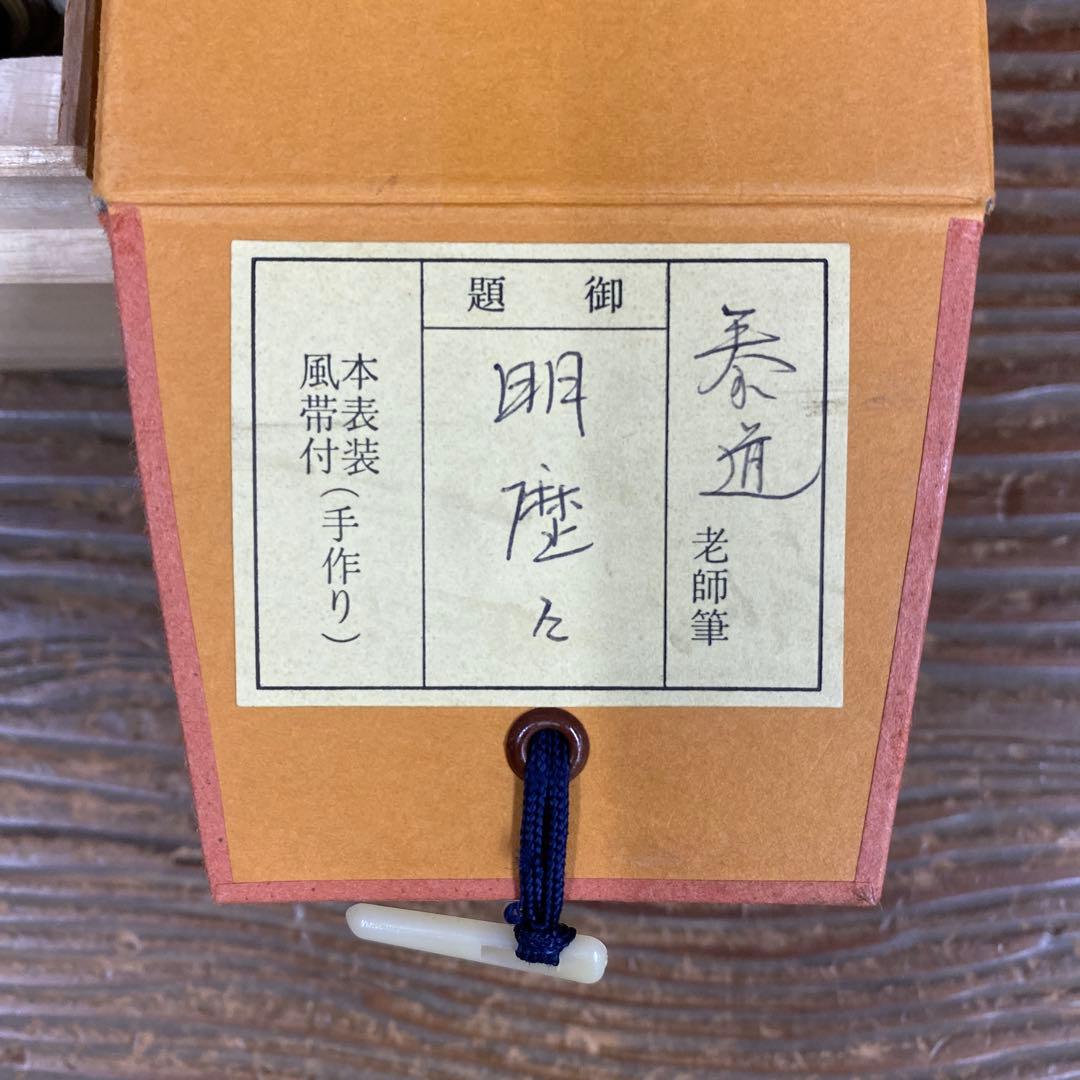 泰道
老師筆
御題
明歴々
本表装
風帯付
(手作り)